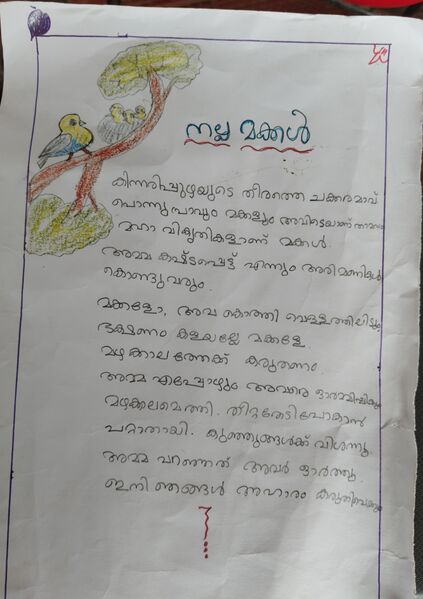 നല്ല മക്കൾ
കിന്നരിപ്പുഴയുടെ തീരത്തെ ചക്കരമാവ്
പൊന്നുപ്രാവും മക്കളും അവിടെയാണ് താമസം
മഹാ വികൃതികളാണ് മക്കൾ.
അമ്മ കഷ്ടപ്പെട്ട് എന്നും അരിമണികൾ
കൊണ്ടുവരും.
മക്കളോ, അവ കൊത്തി വെള്ളത്തിലിടും
ഭക്ഷണം കളയല്ലേ മക്കളേ.
മഴക്കാലത്തേക്ക് കരുതണം.
അമ്മ എപ്പോഴും അവരെ ഓർമ്മിപ്പിക്കും
മഴക്കലമെത്തി. തീറ്റതേടിപോകാൻ
പറ്റാതായി. കുഞ്ഞുങ്ങൾക്ക് വിശന്നു
അമ്മ പറഞ്ഞത് അവർ ഓർത്തു.
ഇനി ഞങ്ങൾ അഹാരം കരുതിവെക്കും